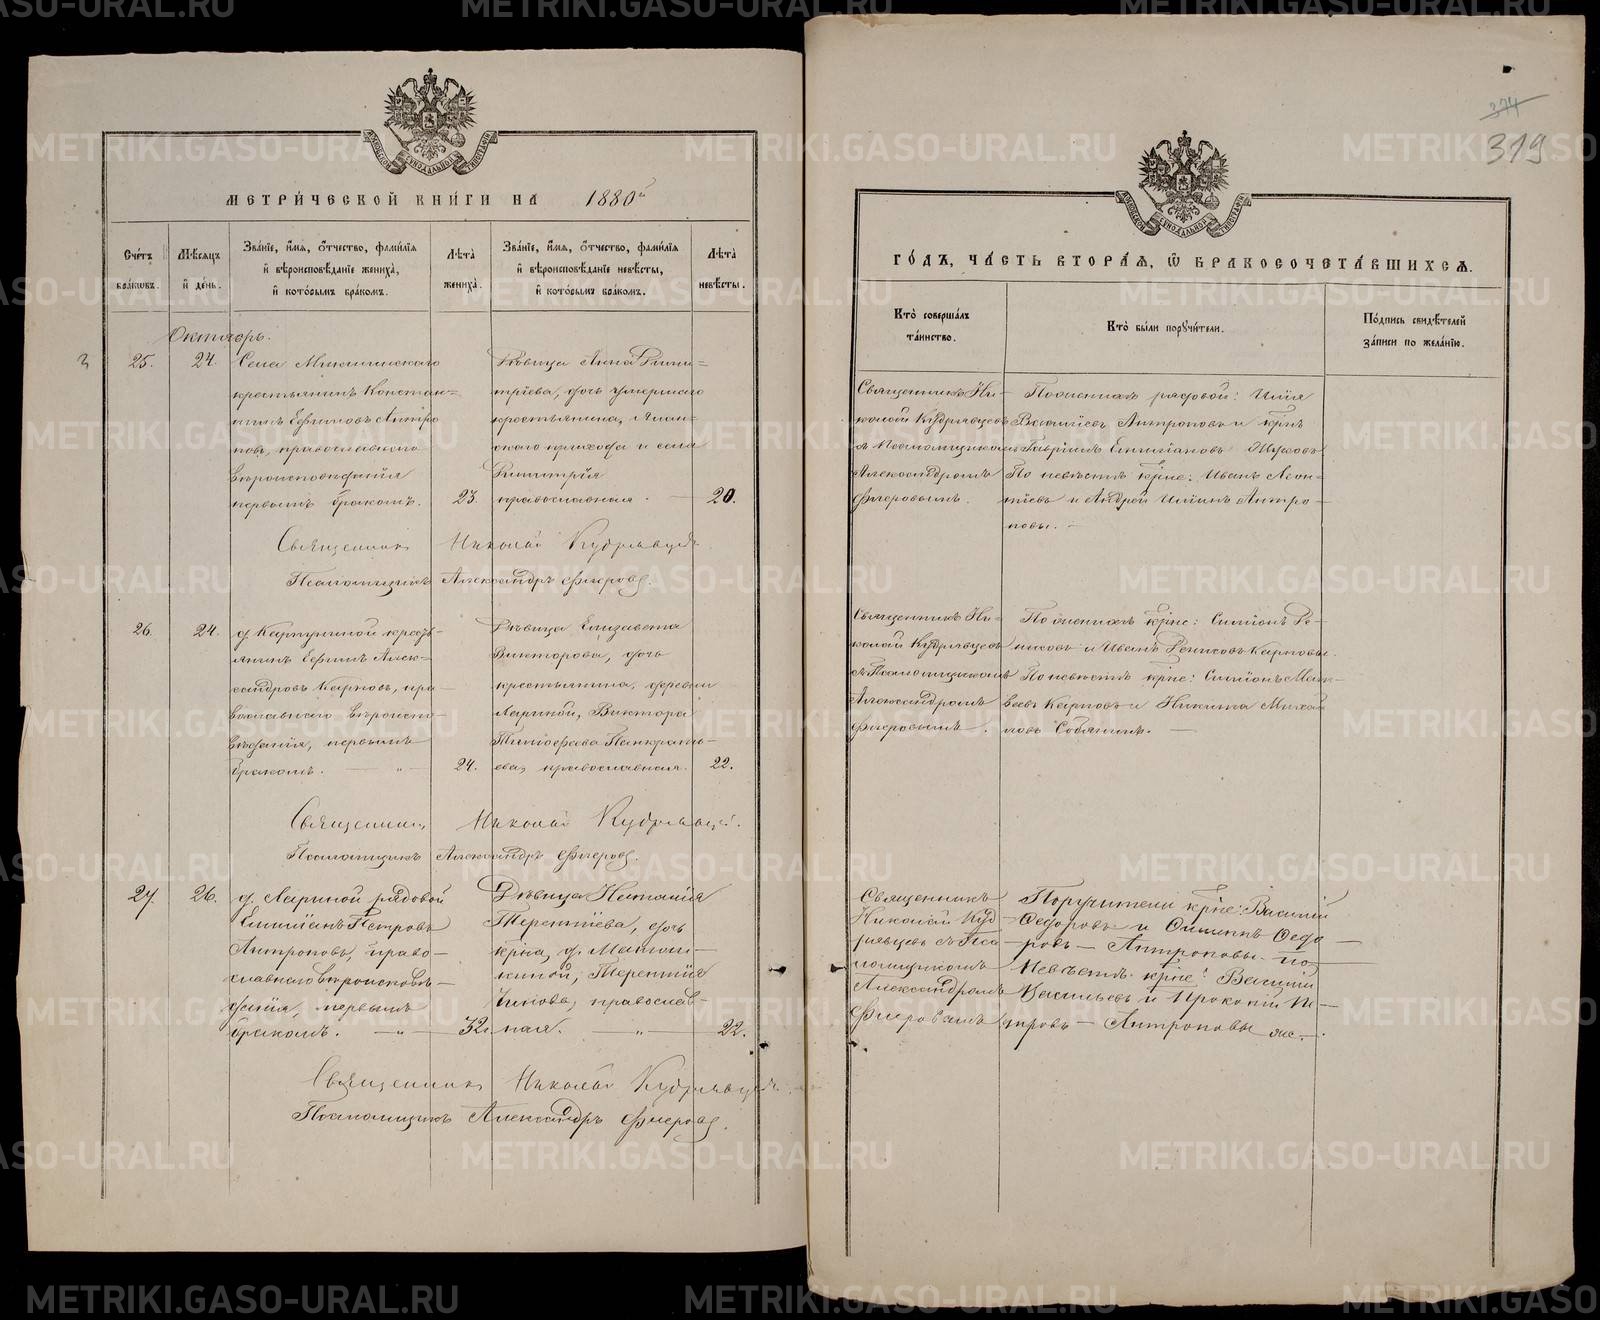 МЕТРИ́ЧЕСКОЙ КНИ́ГИ НА 1880й
Сче́тъ бра́ковъ.
Мѣ́сяцъ и҆ де́нь.
Зва́нїе, и҆́мя, ѻ҆́тчество, фами́лїя и҆ вѣроисповѣ́данїе жениха̀, и҆ кото́рымъ бра́комъ.
Лѣта̀ жениха̀.
Зва́нїе, и҆́мя, ѻ҆́тчество, фами́лїя и҆ вѣроисповѣ́данїе невѣ́сты, и҆ кото́рымъ бра́комъ.
Лѣта̀ невѣ́сты.
Октябрь.
3
25.
24.
Села Микшинскаго
крестьянинъ Констан-
тинъ Ефимовъ Антро
повъ, православнаго
вѣроисповѣданія
первымъ бракомъ.
23.
Дѣвица Анна Дими-
тріева, дочь умершаго
крестьянина,
скаго прихода и села
Димитрія
православная.
20.
Священникъ Николай Кудрявцевъ
Псаломщикъ Александръ Фигеровъ.
26.
24.
д. Карпуниной кресть-
янинъ Ефимъ Алек-
сандровъ Карповъ, пра-
вославнаго вѣроиспо-
вѣданія, первымъ
бракомъ.
24.
Дѣвица Елизавета
Викторова, дочь
крестьянина, деревни
Лариной, Виктора
Тимофеева Панкрать-
ева, православная.
22.
Священникъ Николай Кудрявцевъ.
Псаломщикъ Александръ Фигеровъ.
27.
26.
д. Лариной рядовой
Емиліанъ Петровъ
Антроповъ, право-
славнаго вѣроисповѣ-
данія, первымъ
бракомъ.
32.
Дѣвица Наталія
Терентіева, дочь
кр҃на, д.
Терентія
православ-
ная.
22.
Священникъ Николай Кудрявцевъ
Псаломщикъ Александръ Фигеровъ.
374
319
ГО́ДЪ, ЧА́СТЬ ВТОРА́Я, Ѡ҆ БРАКОСОЧЕТА́ВШИХСЯ.
Кто̀ соверша́лъ та́инство.
Кто̀ бы́ли порꙋчи́тели.
По́дпись свидѣ́телей за́писи по жела́нїю.
Священникъ Ни-
колай Кудрявцевъ
съ Псаломщикомъ
Александромъ
Фигеровымъ.
По женихѣ рядовой: Илія
Василіевъ Антроповъ и кр҃нъ
Гавріилъ Емиліановъ
По невѣстѣ кр҃не: Иванъ Леон-
тіевъ и Андрей Антро-
повы.
Священникъ Ни-
колай Кудрявцевъ
съ Псаломщикомъ
Александромъ
Фигеровымъ.
По женихѣ кр҃не: Симіонъ Де-
нисовъ и Иванъ Денисовъ Карповы.
По невѣстѣ кр҃не: Симіонъ Мат-
веевъ Карповъ и Никита Михай
ловъ Собянинъ.
Священникъ
Николай Куд-
рявцевъ съ Пса-
ломщикомъ
Александромъ
Фигеровымъ
Поручители кр҃не: Василій
Федоровъ и Симеонъ Федо-
ровъ — Антроповы. по
Невѣстѣ кр҃не: Василій
Васильевъ и Прокопій Пе-
тровъ — Антроповы же.